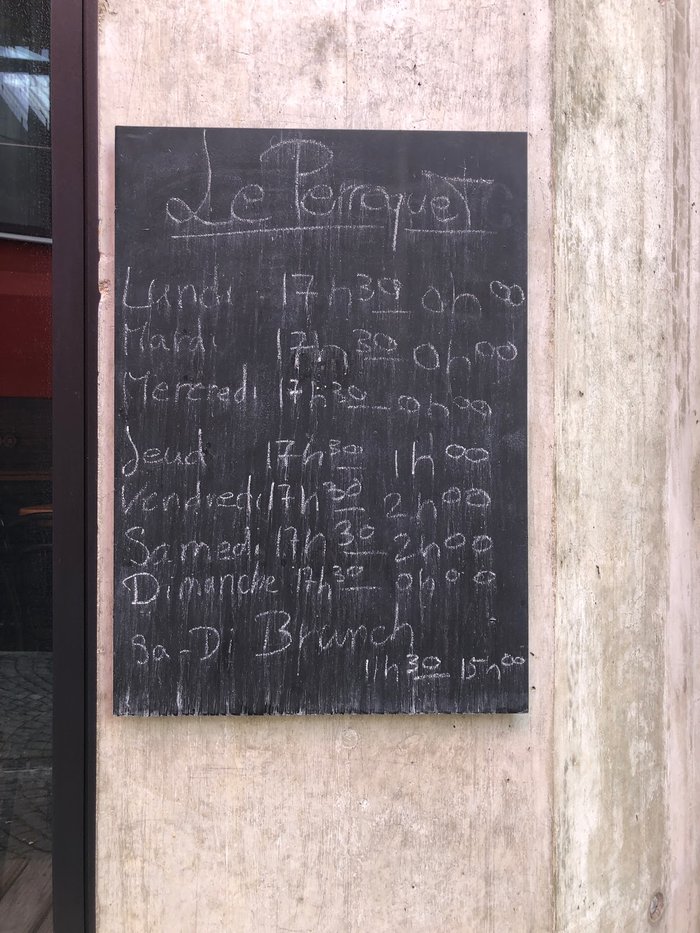 Le Perroquet
Lundi 17h30 0h00
Mardi 17h30 0h00
Mercredi 17h30 0h00
Jeudi 17h30 1h00
Vendredi 17h30 2h00
Samedi 17h30 2h00
Dimanche 17h30 0h00
Sa-Di Brunch
11h30 15h00